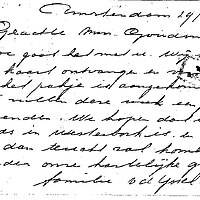 Amsterdam 191
Geachte Mvr.
hoe gaat het met u. Wij
kaart ontvangen en
het pakje is aangekomen
willen deze week een
zenden. We hopen dat
in Westerbork is. en
dan terecht zal komen
den onze hartelijke g
familie v d